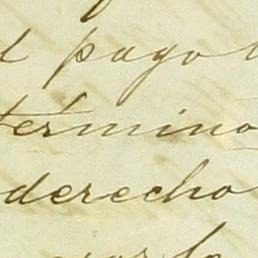 l pago
termino
derecho